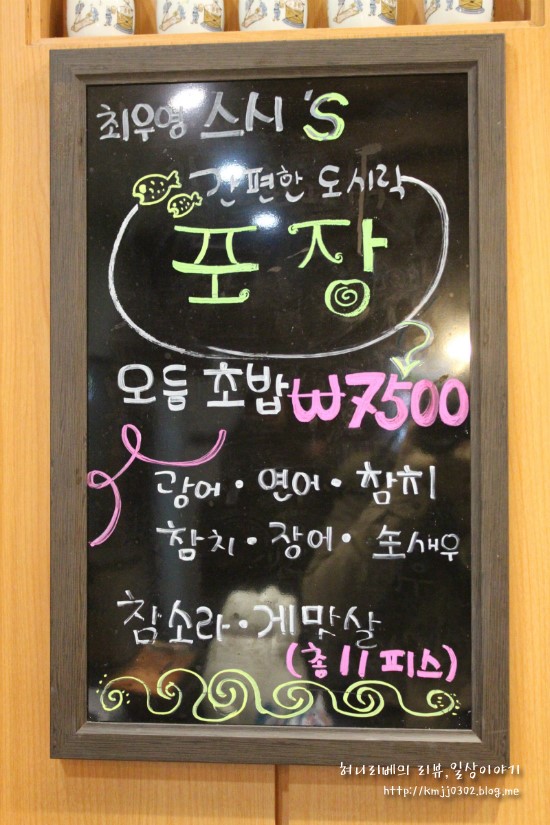 최우영 스시'S
간편한 도시락
포장
모듬 초밥 ₩7500
광어·연어·참치
참치·장어·生새우
참소라·게맛살
(총 11 피스)
혀니리베의 리뷰,일상이야기
http://kmjj0302.blog.me